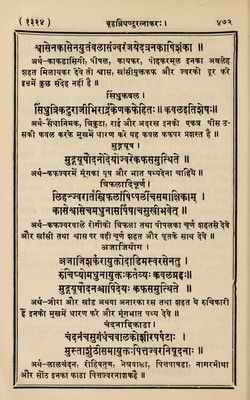 (१३२४) बृहन्निघण्टुरत्नाकरः । ४७२
श्वासेनकासेनयुतंबलासंज्वरंजयेदत्रनकापिशंका ॥
अर्थ-काकडासिंगी, पीपल, कायफर, पोहकरमूल इनका अवलेह
शहत मिलायकर देवे तो श्वास, खांसीयुक्तकफ और ज्वरको दूर करे
इसमें कुछ संदेह नहीं है ॥
सिंधुकवल ।
सिंधुत्रिकटुराजीभिरार्द्रकेणकफेहितः ॥ कवलइतिशेषः ॥
अर्थ-सैंधानिमक, त्रिकुटा, राई और अदरख इनको एकत्र पीस उ-
सकी कवल करके मुखमें धारण करे यह कवल कफपर प्रशस्त है ॥
मुद्गयूष ।
मुद्गयूषौदनोदेयोज्वरेकफसमुत्थिते ॥
अर्थ-कफज्वरमें मूंगका यूष और भात पथ्यदेना चाहिये ॥
त्रिफलादिचूर्ण ।
लिहञ्ज्वरार्तस्त्रिफलांपिप्पलींचसमाक्षिकाम् ।
कासेश्वासेचमधुनासर्पिषाचसुखीभवेत् ॥
अर्थ-कफज्वरवाले रोगीको त्रिफला तथा पीपलका चूर्ण शहतसे देवे
और खांसी तथा श्वास पर वही चूर्ण शहत और घृतके साथ देवे ॥
अजाजियोग ।
अजाजिशर्करायुक्तोदाडिमस्वरसेनतु ।
रुचिप्योमधुनायुक्तःकर्तव्यः कवलग्रहः ॥
मुद्गयूषौदनश्चापिदेयः कफसमुत्थिते ॥
अर्थ-जीरा और खांड अथवा अनारका रस तथा शहत ये रुचिकारी
हैं इनको मुखमें धारण करे और मूंगका यूष तथा भात देवे ॥
चंदनादिकाढा ।
चंदनंचसुगंधंचवालकोशीरपर्पटाः ।
मुस्ताशुंठीसमायुक्ताःपित्तज्वरनिषूदनाः ॥
अर्थ-लालचंदन, रोहिषतृण, नेत्रवाला, पित्तपापडा, नागरमोथा
और सोंठ इनका काढा पित्तज्वरनाशकहै ॥